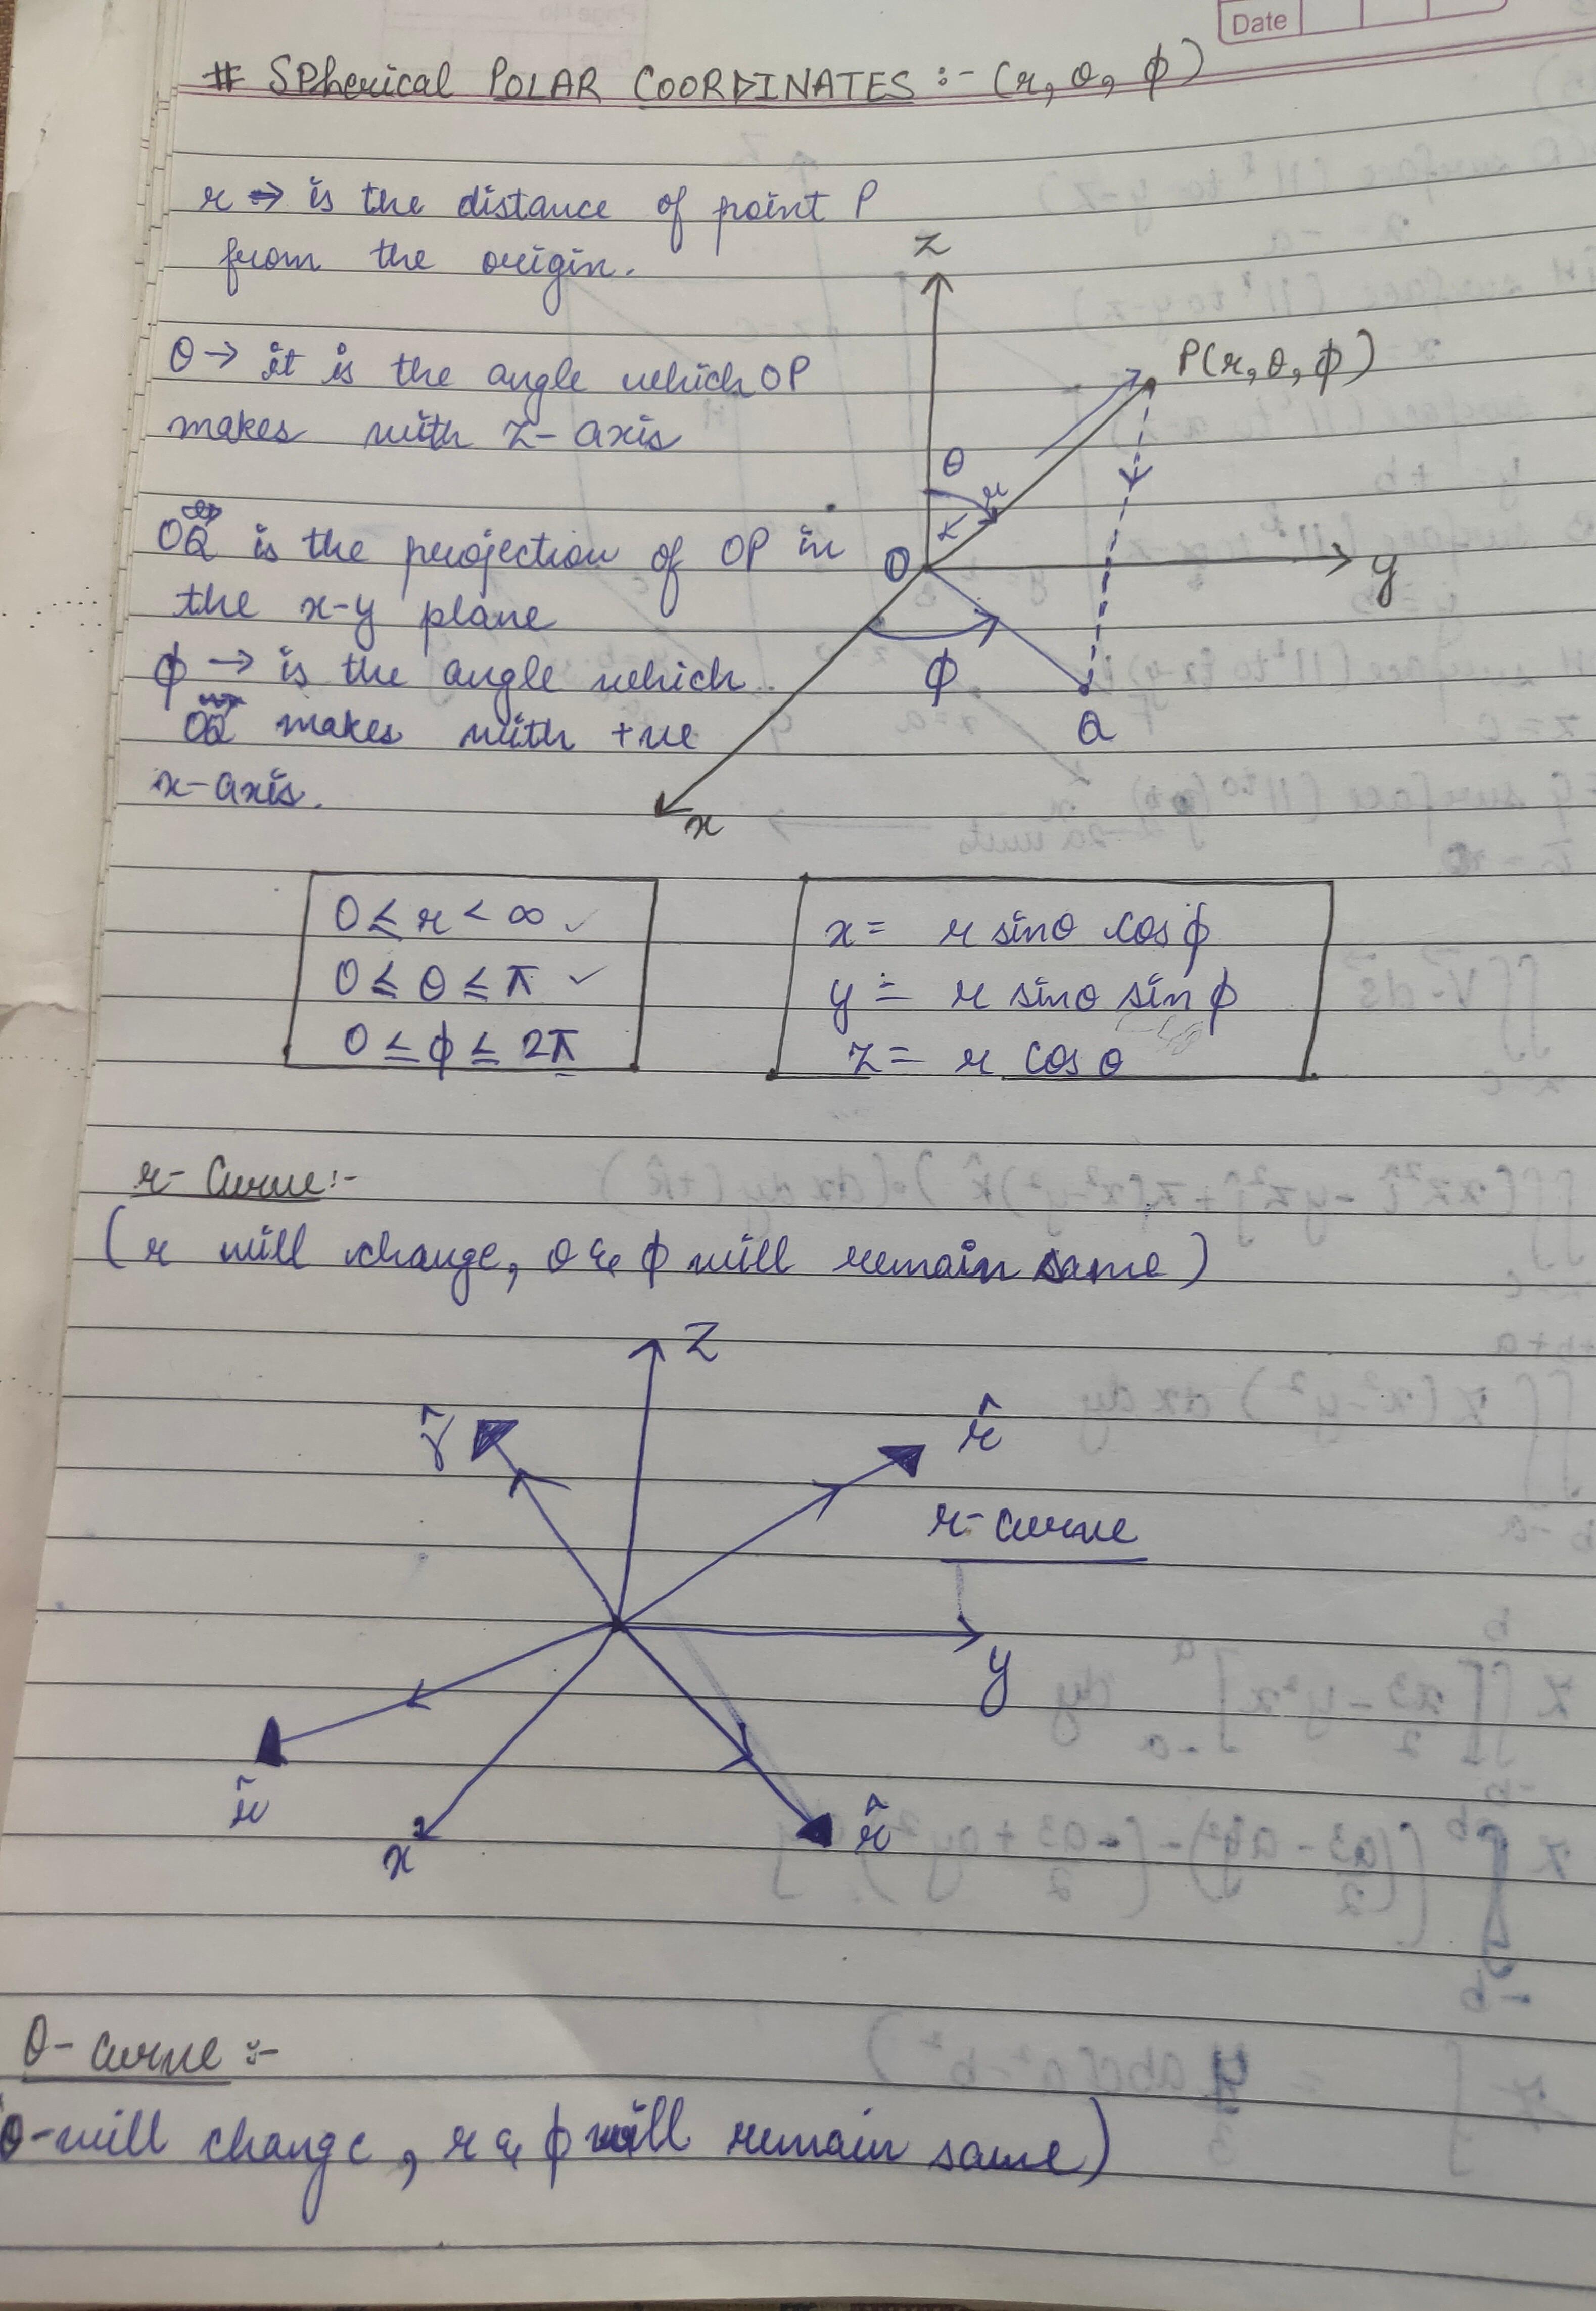 Date
# SPherical POLAR COORDINATES :- (r, θ, ϕ)
r ⇒ is the distance of point P
from the origin.
θ → it is the angle which OP
makes with z-axis
OQ is the projection of OP in
the x-y plane
ϕ → is the angle which
OQ makes with +ve
x-axis.
z
P(r, θ, ϕ)
θ
r
O
y
ϕ
Q
x
0 ≤ r < ∞ ✓
0 ≤ θ ≤ π ✓
0 ≤ ϕ ≤ 2π
x = r sinθ cosϕ
y = r sinθ sinϕ
z = r cosθ
r- Curve:-
(r will change, θ & ϕ will remain same)
z
r̂
r̂
r-curve
y
r̂
x
r̂
θ- curve :-
θ-will change, r & ϕ will remain same)